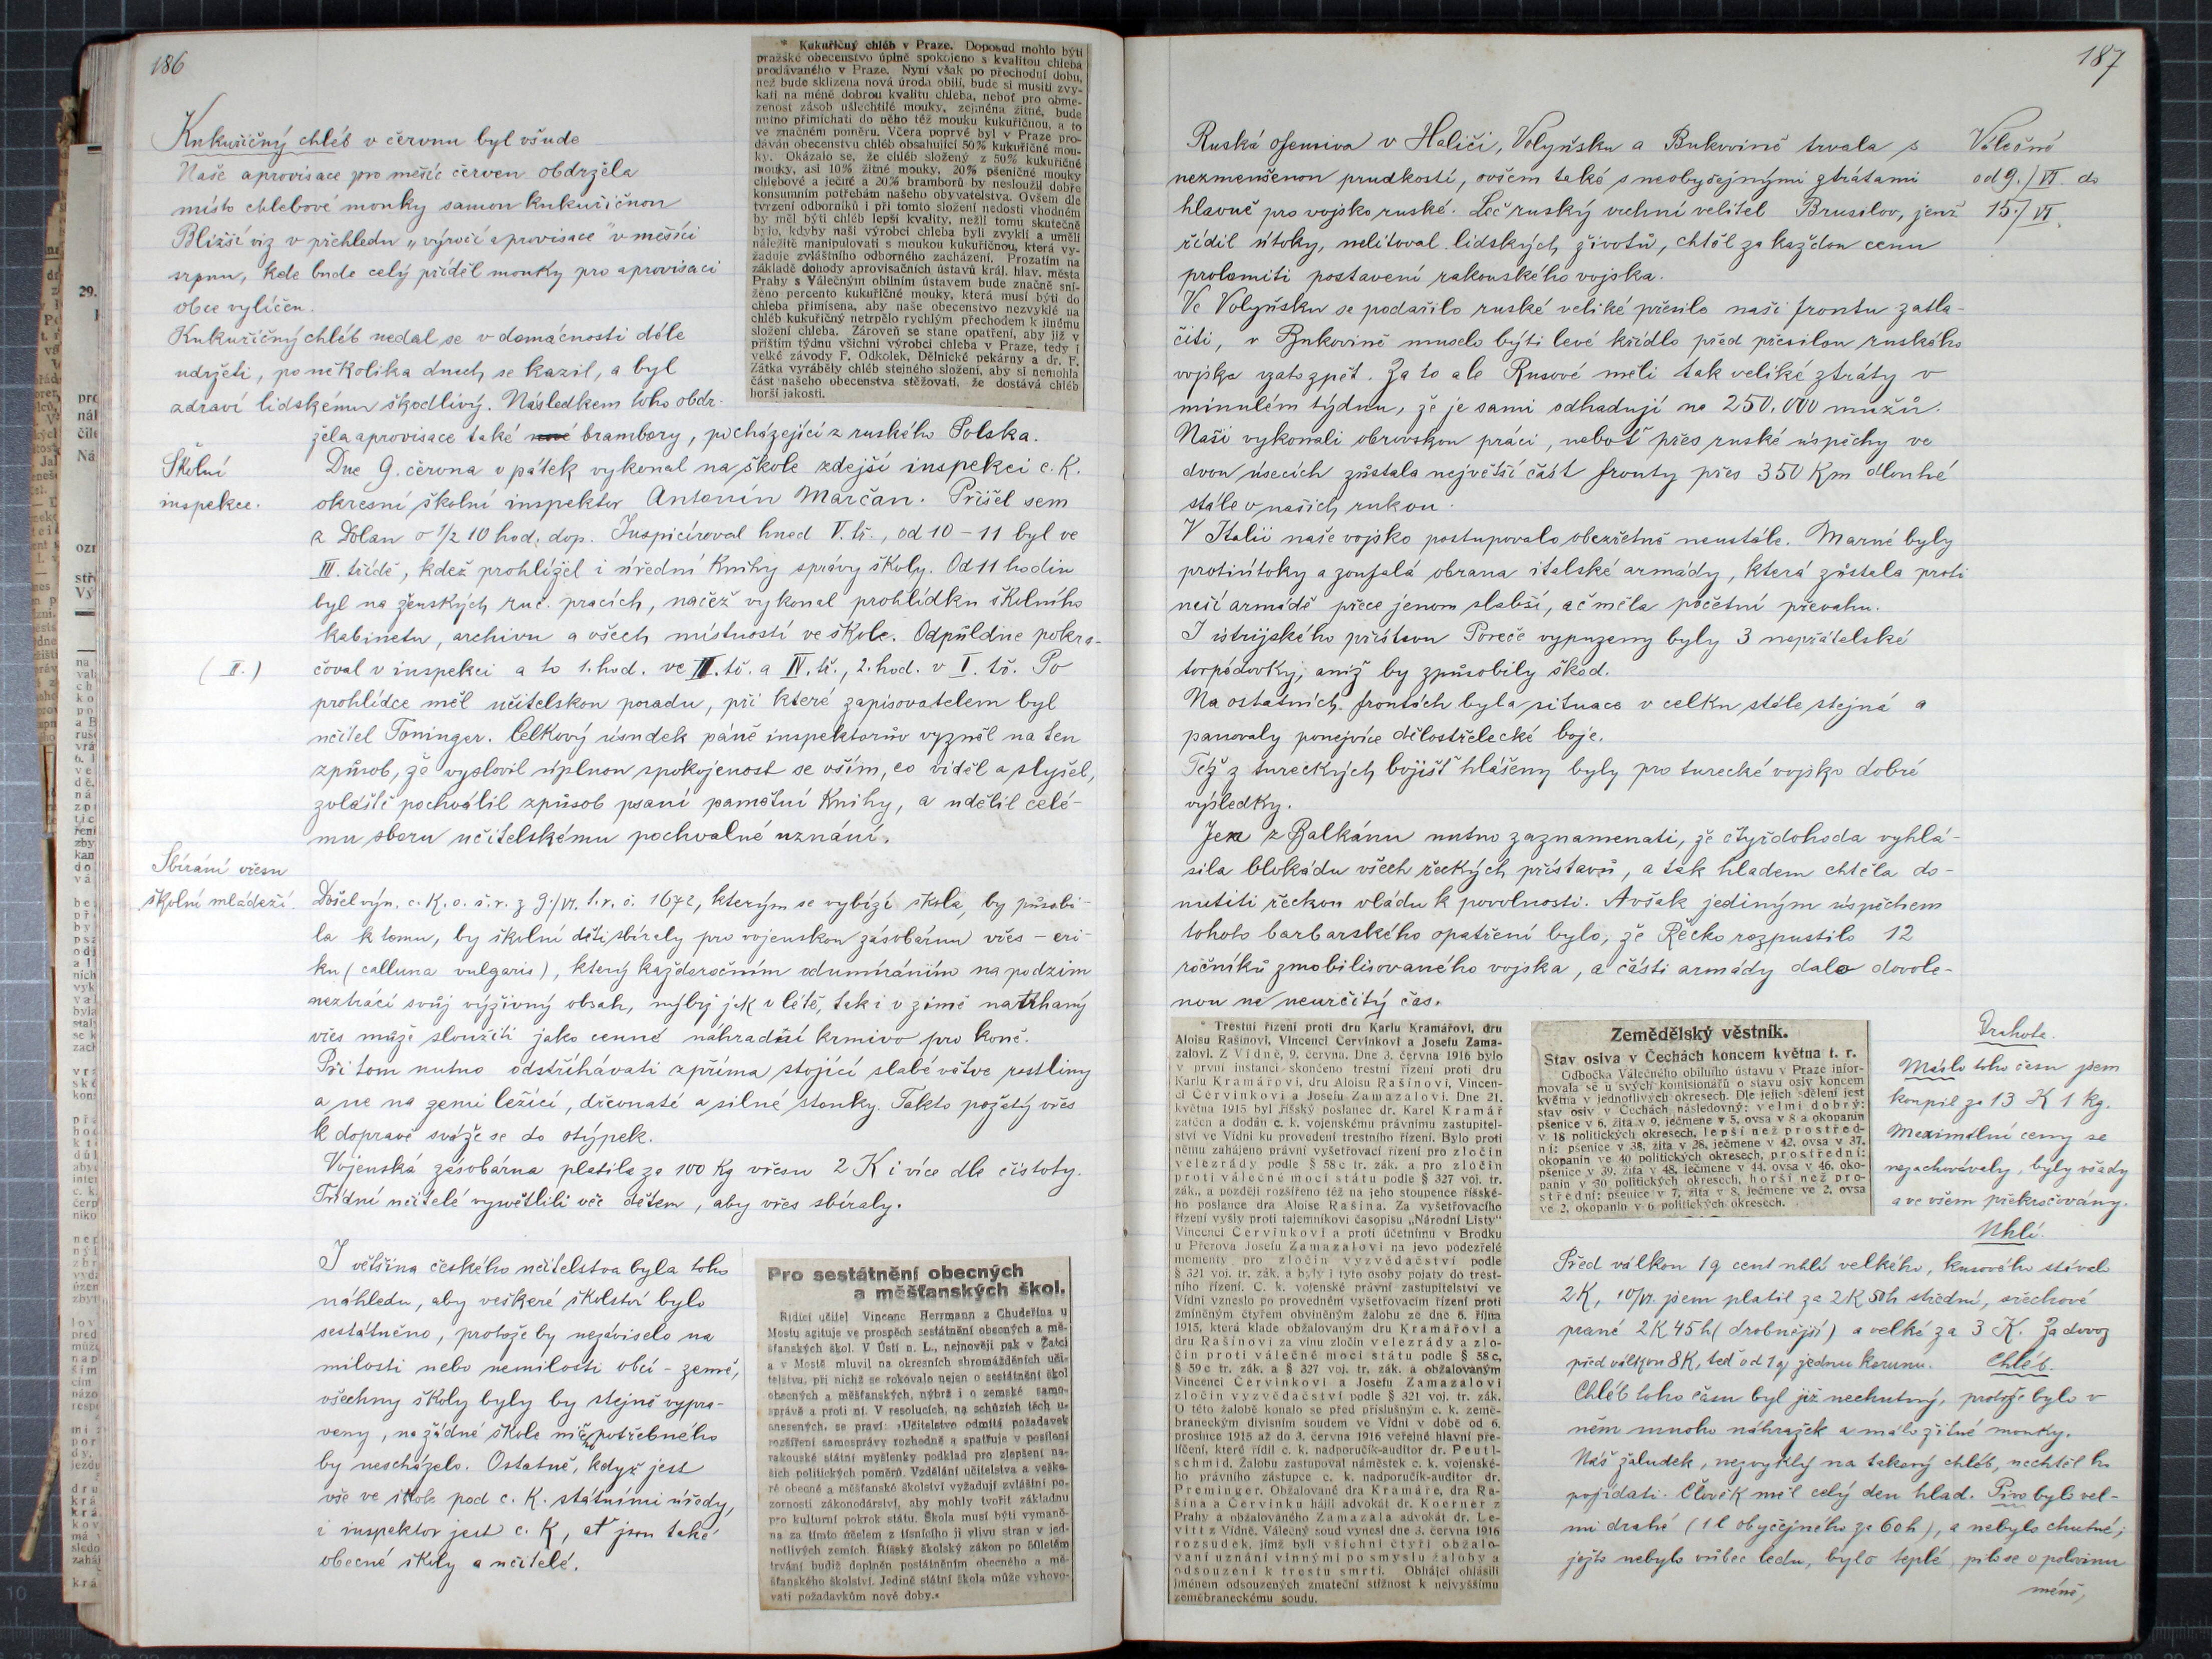 186
Kukuřičný chléb v červnu byl všude
Naše aprovisace pro měsíc červen obdržela
místo chlebové mouky samou kukuřičnou
Bližší viz v přehledu „výročí aprovisace" v měsíci
srpnu, kde bude celý příděl mouky pro aprovisaci
obce vylíčen.
Kukuřičný chléb nedal se v domácnosti déle
udržeti, po několika dnech se kazil, a byl
zdraví lidskému škodlivý. Následkem toho obdr-
žela aprovisace také nové brambory, pocházející z ruského Polska.
* Kukuřičný chléb v Praze. Doposud mohlo býti
pražské obecenstvo úplně spokojeno s kvalitou chleba
prodávaného v Praze. Nyní však po přechodní dobu,
než bude sklizena nová úroda obilí, bude si musiti zvy-
kati na méně dobrou kvalitu chleba, neboť pro obme-
zenost zásob ušlechtilé mouky, zejména žitné, bude
nutno přimíchati do něho též mouku kukuřičnou, a to
ve značném poměru. Včera poprvé byl v Praze pro-
dáván obecenstvu chléb obsahující 50% kukuřičné mou-
ky. Okázalo se, že chléb složený z 50% kukuřičné
mouky, asi 10% žitné mouky, 20% pšeničné mouky
chlebové a ječné a 20% bramborů by nesloužil dobře
konsumním potřebám našeho obyvatelstva. Ovšem dle
tvrzení odborníků i při tomto složení nedosti vhodném
by měl býti chléb lepší kvality, nežli tomu skutečně
bylo, kdyby naši výrobci chleba byli zvykli a uměli
náležitě manipulovati s moukou kukuřičnou, která vy-
žaduje zvláštního odborného zacházení. Prozatím na
základě dohody aprovisačních ústavů král. hlav. města
Prahy s Válečným obilním ústavem bude značně sní-
ženo percento kukuřičné mouky, která musí býti do
chleba přimísena, aby naše obecenstvo nezvyklé na
chléb kukuřičný netrpělo rychlým přechodem k jinému
složení chleba. Zároveň se stane opatření, aby již v
příštím týdnu všichni výrobci chleba v Praze, tedy i
velké závody F. Odkolek, Dělnické pekárny a dr. F.
Zátka vyráběly chléb stejného složení, aby si nemohla
část našeho obecenstva stěžovati, že dostává chléb
horší jakosti.
Školní
inspekce.
Dne 9. června v pátek vykonal na škole zdejší inspekci c. K.
okresní školní inspektor Antonín Marčan. Přišel sem
z Dolan o 1/2 10 hod. dop. Inspicíroval hned V. tř., od 10 – 11 byl ve
III. třídě, kdež prohlížel i úřední Knihy správy školy. Od 11 hodin
byl na ženských ruč. pracích, načež vykonal prohlídku školního
kabinetu, archivu a všech místností ve škole. Odpůldne pokra-
(II.)
čoval v inspekci a to 1. hod. ve II. tř. a IV. tř., 2. hod. v I. tř. Po
prohlídce měl učitelskou poradu, při které zapisovatelem byl
učitel Toninger. Celkový úsudek páně inspektorův vyzněl na ten
způsob, že vyslovil úplnou spokojenost se vším, co viděl a slyšel,
zvláště pochválil způsob psaní pamětní Knihy, a udělil celé-
mu sboru učitelskému pochvalné uznání.
Sbírání vřesu
školní mládeží.
Došel výn. c. K. o. š. r. z 9./VI. t. r. č. 1672, kterým se vybízí škola, by působi-
la k tomu, by školní děti sbíraly pro vojenskou zásobárnu vřes – eri-
ku (calluna vulgaris), který každoročním odumíráním na podzim
neztrácí svůj výživný obsah, nýbrž jak v létě, tak i v zimě natrhaný
vřes může sloužiti jako cenné náhradní krmivo pro koně.
Při tom nutno odstříhávati zpříma stojící slabé větve rostliny
a ne na zemi ležící, dřevnaté a silné stonky. Takto požatý vřes
k dopravě sváže se do otýpek.
Vojenská zásobárna platila za 100 Kg vřesu 2 K i více dle čistoty.
Třídní učitelé vysvětlili věc dětem, aby vřes sbíraly.
I většina českého učitelstva byla toho
náhledu, aby veškeré školství bylo
sestátněno, protože by nezáviselo na
milosti nebo nemilosti obcí – země,
všechny školy byly by stejně vypra-
veny, na žádné škole nič potřebného
by nescházelo. Ostatně, když jest
vše ve škole pod c. K. státními úřady,
i inspektor jest c. K, ať jsou také
obecné školy a učitelé.
Pro sestátnění obecných
a měšťanských škol.
Řídící učitel Vincenc Herrmann z Chudeřína u
Mostu agituje ve prospěch sestátnění obecných a mě-
šťanských škol. V Ústí n. L., nejnověji pak v Žatci
a v Mostě mluvil na okresních shromážděních uči-
telstva, při nichž se rokovalo nejen o sestátnění škol
obecných a měšťanských, nýbrž i o zemské samo-
správě a proti ní. V resolucích, na schůzích těch u-
snesených, se praví: »Učitelstvo odmítá požadavek
rozšíření samosprávy rozhodně a spatřuje v posílení
rakouské státní myšlenky podklad pro zlepšení na-
šich politických poměrů. Vzdělání učitelstva a veške-
ré obecné a měšťanské školství vyžadují zvláštní po-
zornosti zákonodárství, aby mohly tvořit základnu
pro kulturní pokrok státu. Škola musí býti vymaně-
na za tímto účelem z tísnícího ji vlivu stran v jed-
notlivých zemích. Říšský školský zákon po 50letém
trvání budiž doplněn postátněním obecného a mě-
šťanského školství. Jedině státní škola může vyhovo-
vati požadavkům nové doby.«
187
Válečné
od 9./VI. do
15./VI.
Ruská ofensiva v Haliči, Volyňsku a Bukovině trvala s
nezmenšenou prudkostí, ovšem také s neobyčejnými ztrátami
hlavně pro vojsko ruské. Leč ruský vrchní velitel Brusilov, jenž
řídil útoky, nelitoval lidských životů, chtěl za každou cenu
prolomiti postavení rakouského vojska.
Ve Volyňsku se podařilo ruské veliké přesile naši frontu zatla-
čiti, v Bukovině muselo býti levé křídlo před přesilou ruského
vojska vzato zpět. Za to ale Rusové měli tak veliké ztráty v
minulém týdnu, že je sami odhadují na 250.000 mužů.
Naši vykonali obrovskou práci, neboť přes ruské úspěchy ve
dvou úsecích zůstala největší část fronty přes 350 Km dlouhé
stále v našich rukou.
V Italii naše vojsko postupovalo obezřetně neustále. Marné byly
protiútoky a zoufalá obrana italské armády, která zůstala proti
naší armádě přece jenom slabší, ač měla početní převahu.
I istrijského přístavu Poreče vypuzeny byly 3 nepřátelské
torpédovky, aniž by způsobily škod.
Na ostatních frontách byla situace v celku stále stejná a
panovaly ponejvíce dělostřelecké boje.
Též z tureckých bojišť hlášeny byly pro turecké vojsko dobré
výsledky.
Jen z Balkánu nutno zaznamenati, že čtyřdohoda vyhlá-
sila blokádu všech řeckých přístavů, a tak hladem chtěla do-
nutiti řeckou vládu k povolnosti. Avšak jediným úspěchem
tohoto barbarského opatření bylo, že Řecko rozpustilo 12
ročníků zmobilisovaného vojska, a části armády dalo dovole-
nou na neurčitý čas.
* Trestní řízení proti dru Karlu Kramářovi, dru
Aloisu Rašínovi, Vincenci Červinkovi a Josefu Zama-
zalovi. Z Vídně, 9. června. Dne 3. června 1916 bylo
v první instanci skončeno trestní řízení proti dru
Karlu Kramářovi, dru Aloisu Rašínovi, Vincen-
ci Červinkovi a Josefu Zamazalovi. Dne 21.
května 1915 byl říšský poslanec dr. Karel Kramář
zatčen a dodán c. k. vojenskému právnímu zastupitel-
ství ve Vídni ku provedení trestního řízení. Bylo proti
němu zahájeno právní vyšetřovací řízení pro zločin
velezrády podle § 58 c tr. zák. a pro zločin
proti válečné moci státu podle § 327 voj. tr.
zák., a později rozšířeno též na jeho stoupence říšské-
ho poslance dra Aloise Rašína. Za vyšetřovacího
řízení vyšly proti tajemníkovi časopisu „Národní Listy"
Vincenci Červinkovi a proti účetnímu v Brodku
u Přerova Josefu Zamazalovi na jevo podezřelé
momenty pro zločin vyzvědačství podle
§ 321 voj. tr. zák. a byly i tyto osoby pojaty do trest-
ního řízení. C. k. vojenské právní zastupitelství ve
Vídni vzneslo po provedném vyšetřovacím řízení proti
zmíněným čtyřem obviněným žalobu ze dne 6. října
1915, která klade obžalovaným dru Kramářovi a
dru Rašínovi za vinu zločin velezrády a zlo-
čin proti válečné moci státu podle § 58 c,
§ 59 c tr. zák. a § 327 voj. tr. zák. a obžalovaným
Vincenci Červinkovi a Josefu Zamazalovi
zločin vyzvědačství podle § 321 voj. tr. zák.
O této žalobě konalo se před příslušným c. k. země-
braneckým divisním soudem ve Vídni v době od 6.
prosince 1915 až do 3. června 1916 veřejné hlavní pře-
líčení, které řídil c. k. nadporučík-auditor dr. Peutl-
schmid. Žalobu zastupoval náměstek c. k. vojenské-
ho právního zástupce c. k. nadporučík-auditor dr.
Preminger. Obžalované dra Kramáře, dra Ra-
šína a Červinku hájil advokát dr. Koerner z
Prahy a obžalovaného Zamazala advokát dr. Le-
vitt z Vídně. Válečný soud vynesl dne 3. června 1916
rozsudek, jímž byli všichni čtyři obžalo-
vaní uznáni vinnými po smyslu žaloby a
odsouzeni k trestu smrti. Obhájci ohlásili
jménem odsouzených zmateční stížnost k nejvyššímu
zeměbraneckému soudu.
Zemědělský věstník.
Stav osiva v Čechách koncem května t. r.
Odbočka Válečného obilního ústavu v Praze infor-
movala se u svých komisionářů o stavu osiv koncem
května v jednotlivých okresech. Dle jejich sdělení jest
stav osiv v Čechách následovný: velmi dobrý:
pšenice v 6, žita v 9, ječmene v 5, ovsa v 8 a okopanin
v 18 politických okresech, lepší než prostřed-
ní: pšenice v 38, žita v 28, ječmene v 42, ovsa v 37,
okopanin ve 40 politických okresech, prostřední:
pšenice v 39, žita v 48, ječmene v 44, ovsa v 46, oko-
panin v 30 politických okresech, horší než pro-
střední: pšenice v 7, žita v 8, ječmene ve 2, ovsa
ve 2, okopanin v 6 politických okresech.
Drahota.
Máslo toho času jsem
koupil za 13 K 1 kg.
Maximální ceny se
nezachovávaly, byly všady
a ve všem překročovány.
Uhlí.
Před válkou 1 q cent uhlí velkého, kusového stávalo
2 K, 10/VI. jsem platil za 2 K 50 h střední, ořechové
prané 2 K 45 h (drobnější) a velké za 3 K. Za dovoz
před válkou 8 K, teď od 1 q jednu korunu.
Chléb.
Chléb toho času byl již nechutný, protože bylo v
něm mnoho náhražek a málo žitné mouky.
Náš žaludek, nezvyklý na takový chléb, nechtěl ho
pojídati. Člověk měl celý den hlad. Pivo bylo vel-
mi drahé (1 l obyčejného za 60 h), a nebylo chutné;
ježto nebylo vůbec ledu, bylo teplé, pilo se o polovinu
méně,